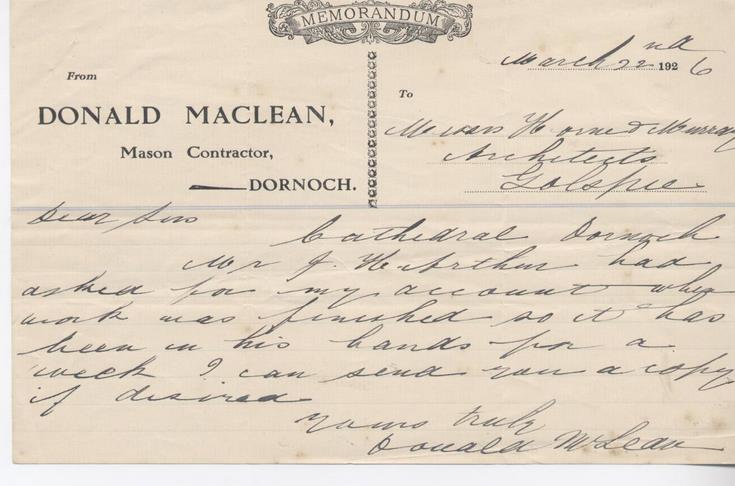 MEMORANDUM
March 22nd 1926
From
To
DONALD MACLEAN,
Mason Contractor,
DORNOCH.
Messrs Horne & Murray
Architects
Golspie
Dear Sirs
Cathedral Dornoch
Mr J. McArthur had
asked for my account when
work was finished so it has
been in his hands for a
week I can send you a copy
if desired
Yours truly
Donald McLean